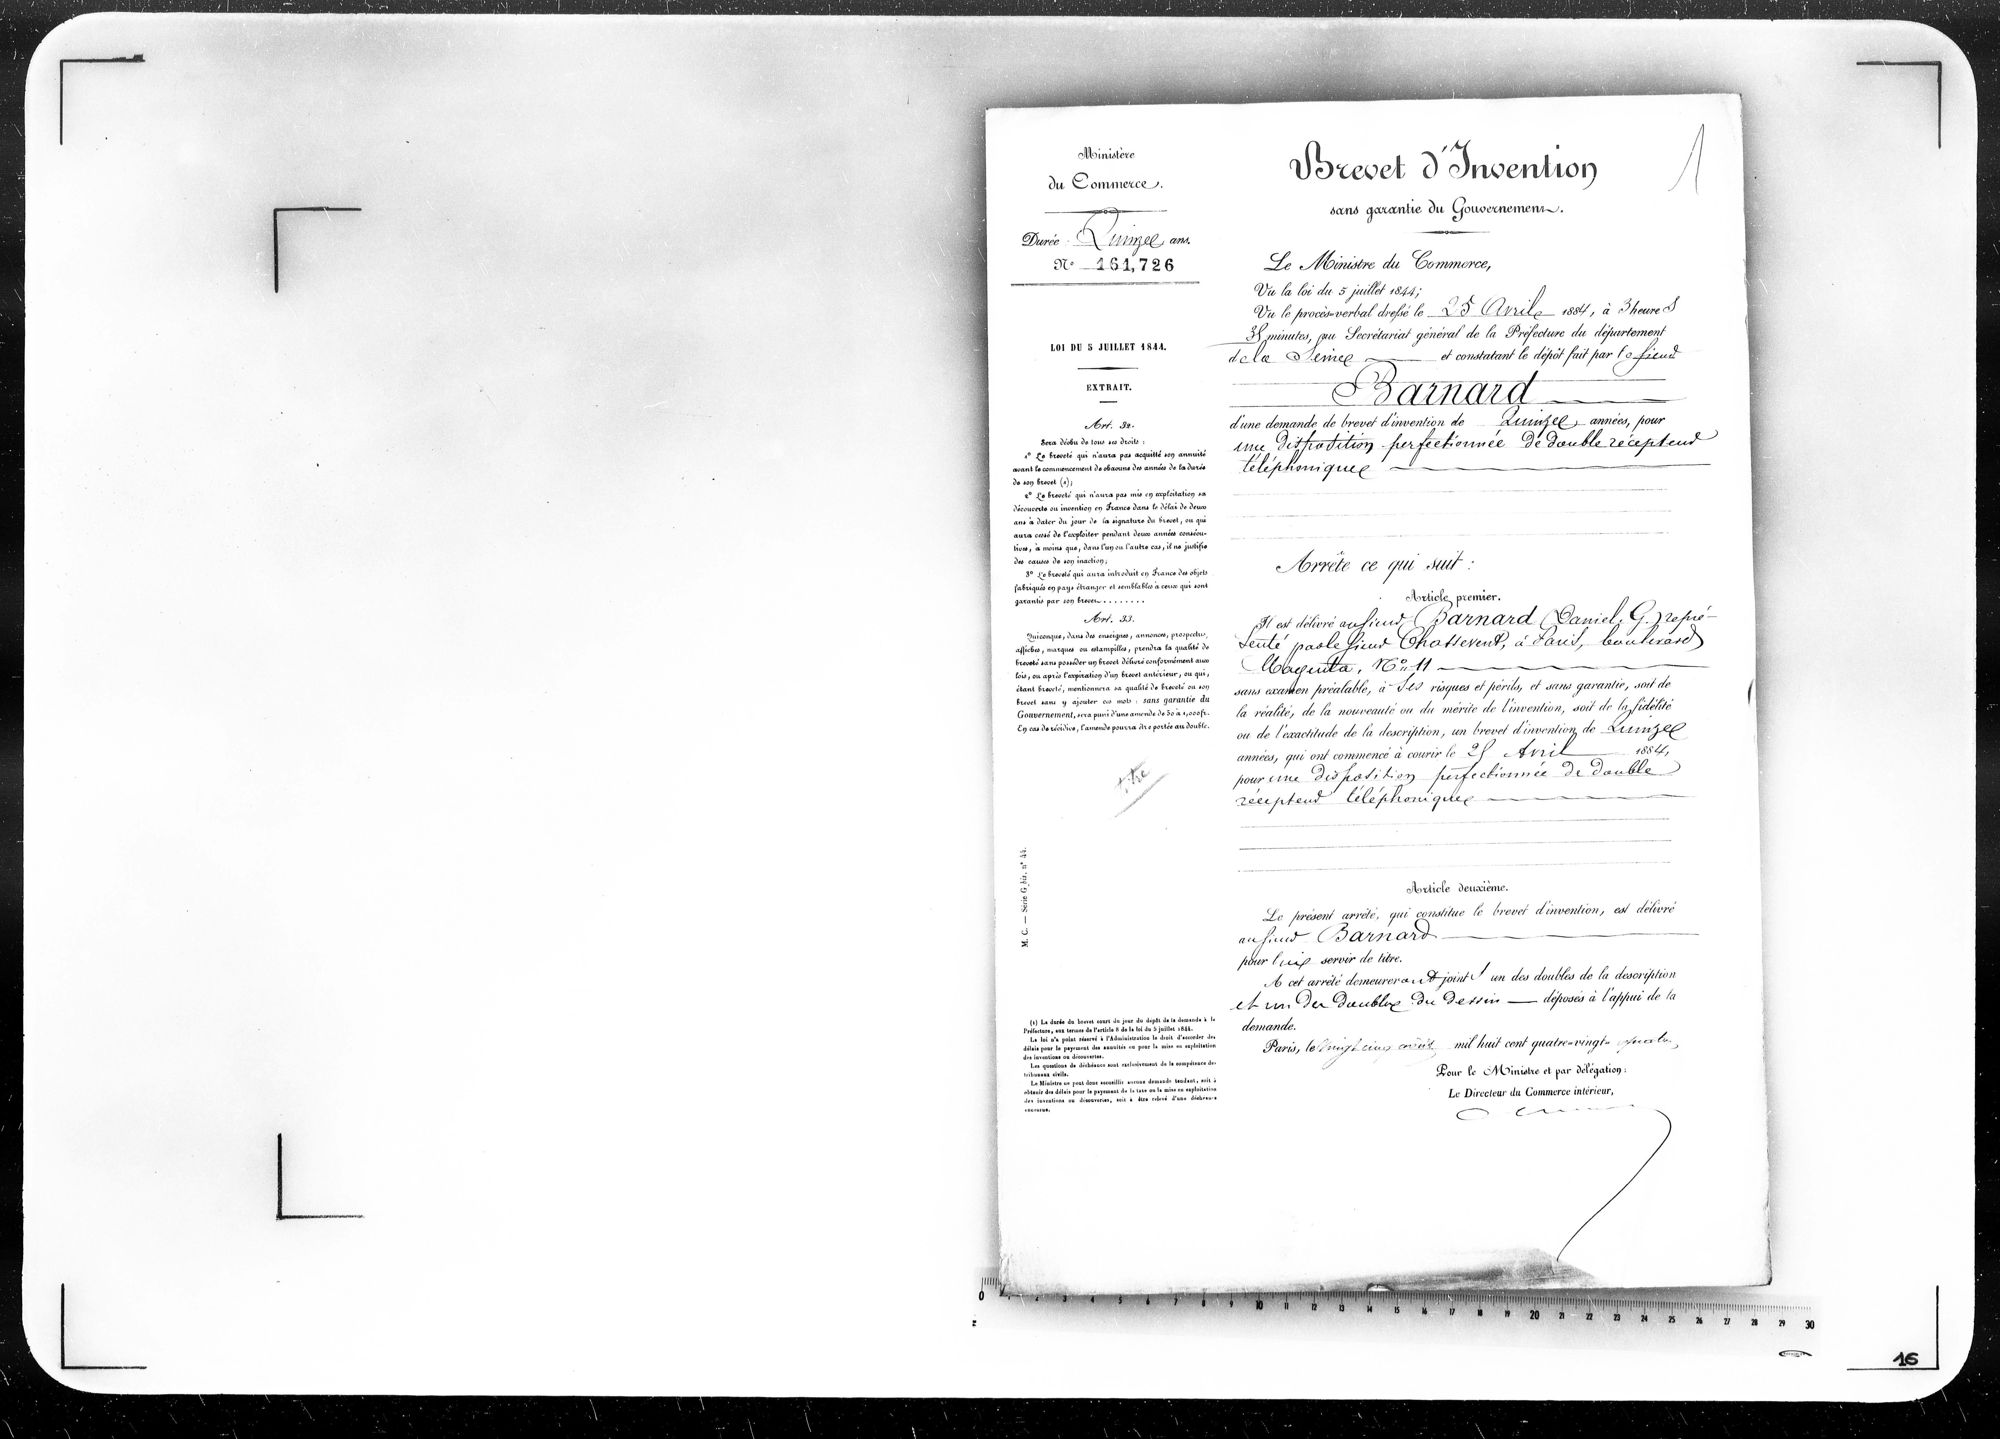 Ministère
du Commerce.
Durée Quinze ans.
N° 161,726
LOI DU 5 JUILLET 1844.
EXTRAIT.
Art. 32.
Sera déchu de tous ses droits :
1° Le breveté qui n'aura pas acquitté son annuité
avant le commencement de chacune des années de la durée
de son brevet (1);
2° Le breveté qui n'aura pas mis en exploitation sa
découverte ou invention en France dans le délai de deux
ans à dater du jour de la signature du brevet, ou qui
aura cessé de l'exploiter pendant deux années consécu-
tives, à moins que, dans l'un ou l'autre cas, il ne justifie
des causes de son inaction;
3° Le breveté qui aura introduit en France des objets
fabriqués en pays étranger et semblables à ceux qui sont
garantis par son brevet........
Art. 33.
Quiconque, dans des enseignes, annonces, prospectus,
affiches, marques ou estampilles, prendra la qualité de
breveté sans posséder un brevet délivré conformément aux
lois, ou après l'expiration d'un brevet antérieur, ou qui,
étant breveté, mentionnera sa qualité de breveté ou son
brevet sans y ajouter ces mots : sans garantie du
Gouvernement, sera puni d'une amende de 50 à 1,000 fr.
En cas de récidive, l'amende pourra être portée au double.
titre
M. C. — Série G bis, n° 44.
(1) La durée du brevet court du jour du dépôt de la demande à la
Préfecture, aux termes de l'article 8 de la loi du 5 juillet 1844.
La loi n'a point réservé à l'Administration le droit d'accorder des
délais pour le payement des annuités ou pour la mise en exploitation
des inventions ou découvertes.
Les questions de déchéance sont exclusivement de la compétence des
tribunaux civils.
Le Ministre ne peut donc accueillir aucune demande tendant, soit à
obtenir des délais pour le payement de la taxe ou la mise en exploitation
des inventions ou découvertes, soit à être relevé d'une déchéance
encourue.
1
Brevet d'Invention
sans garantie du Gouvernement.
Le Ministre du Commerce,
Vu la loi du 5 juillet 1844;
Vu le procès-verbal dressé le 25 Avril 1884, à 3 heures
35 minutes, au Secrétariat général de la Préfecture du département
de la Seine et constatant le dépôt fait par le sieur
Barnard
d'une demande de brevet d'invention de Quinze années, pour
une disposition perfectionnée de double récepteur
téléphonique
Arrête ce qui suit :
Article premier.
Il est délivré au sieur Barnard Daniel G. repré-
senté par le sieur Chassevent, à Paris, boulevard
Magenta, N° 11
sans examen préalable, à ses risques et périls, et sans garantie, soit de
la réalité, de la nouveauté ou du mérite de l'invention, soit de la fidélité
ou de l'exactitude de la description, un brevet d'invention de Quinze
années, qui ont commencé à courir le 25 Avril 1884,
pour une disposition perfectionnée de double
récepteur téléphonique
Article deuxième.
Le présent arrêté, qui constitue le brevet d'invention, est délivré
au sieur Barnard
pour lui servir de titre.
A cet arrêté demeureront joints un des doubles de la description
et un des doubles du dessin — déposés à l'appui de la
demande.
Paris, le vingt cinq août mil huit cent quatre-vingt-quatre
Pour le Ministre et par délégation :
Le Directeur du Commerce intérieur,
0 1 2 3 4 5 6 7 8 9 10 11 12 13 14 15 16 17 18 19 20 21 22 23 24 25 26 27 28 29 30
16